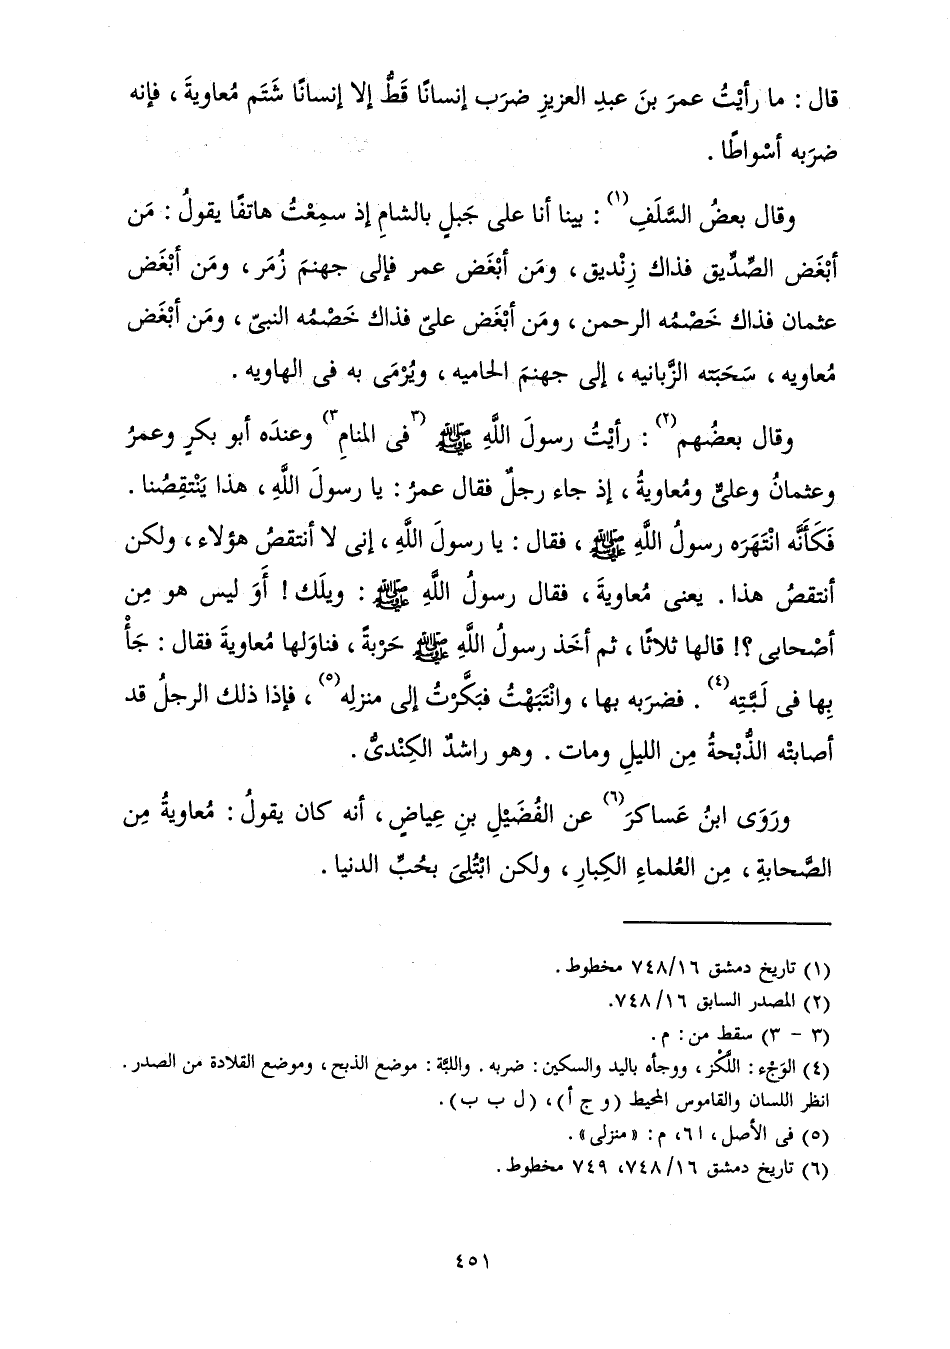 قال : ما رأيْتُ عمرَ بنَ عبدِ العزيزِ ضرَب إنسانًا قَطُّ إلا إنسانًا شَتَم مُعاويةَ ، فإنه
ضرَبه أسْواطًا .
وقال بعضُ السَّلَفِ(١) : بينا أنا على جَبلٍ بالشامِ إذ سمِعْتُ هاتفًا يقولُ : مَن
أبْغَض الصِّدِّيق فذاك زِنْديق ، ومَن أبْغَض عمر فإلى جهنمَ زُمَر ، ومَن أبْغَض
عثمان فذاك خَصْمُه الرحمن ، ومَن أبْغَض علىّ فذاك خَصْمُه النبىّ ، ومَن أبْغَض
مُعاويه ، سَحَبَته الزَّبانيه ، إلى جهنمَ الحاميه ، ويُرْمَى به فى الهاويه .
وقال بعضُهم(٢) : رأيْتُ رسولَ اللَّهِ ﷺ (٣فى المنامِ٣) وعندَه أبو بكرٍ وعمرُ
وعثمانُ وعلىٌّ ومُعاويةُ ، إذ جاء رجلٌ فقال عمرُ : يا رسولَ اللَّهِ ، هذا يَنْتقِصُنا .
فَكَأَنَّه انْتَهَرَه رسولُ اللَّهِ ﷺ ، فقال : يا رسولَ اللَّهِ ، إنى لا أنتقصُ هؤلاء ، ولكن
أنتقصُ هذا . يعنى مُعاويةَ ، فقال رسولُ اللَّهِ ﷺ : ويلَك ! أَوَ ليس هو مِن
أصْحابى ؟! قالها ثلاثًا ، ثم أخَذ رسولُ اللَّهِ ﷺ حَرْبةً ، فناوَلها مُعاويةَ فقال : جَأْ
بِها فى لَبَّتِه(٤) . فضرَبه بها ، وانْتَبَهْتُ فبَكَّرْتُ إلى منزلِه(٥) ، فإذا ذلك الرجلُ قد
أصابتْه الذُّبْحةُ مِن الليلِ ومات . وهو راشدٌ الكِنْدىُّ .
ورَوَى ابنُ عَساكرَ(٦) عن الفُضَيْلِ بنِ عِياضٍ ، أنه كان يقولُ : مُعاويةُ مِن
الصَّحابةِ ، مِن العُلماءِ الكِبارِ ، ولكن ابْتُلِىَ بحُبِّ الدنيا .
(١) تاريخ دمشق ٧٤٨/١٦ مخطوط .
(٢) المصدر السابق ٧٤٨/١٦.
(٣ - ٣) سقط من : م .
(٤) الوَجْء : اللَّكْز ، ووجأه باليد والسكين : ضربه . واللبَّة : موضع الذبح ، وموضع القلادة من الصدر .
انظر اللسان والقاموس المحيط (و ج أ) ، (ل ب ب) .
(٥) فى الأصل ، ا٦، م : «منزلى» .
(٦) تاريخ دمشق ٧٤٨/١٦، ٧٤٩ مخطوط .
٤٥١